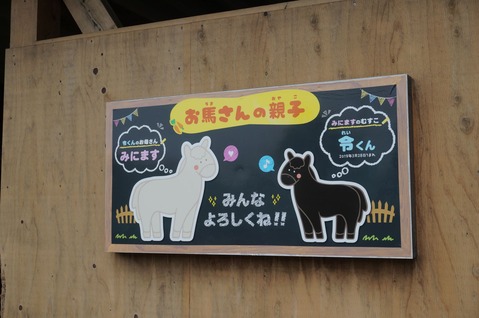 お馬さんの親子
うま
おやこ
令くんのお母さん
みにます
みにますのむすこ
れい
令くん
みんな
よろしくね!!